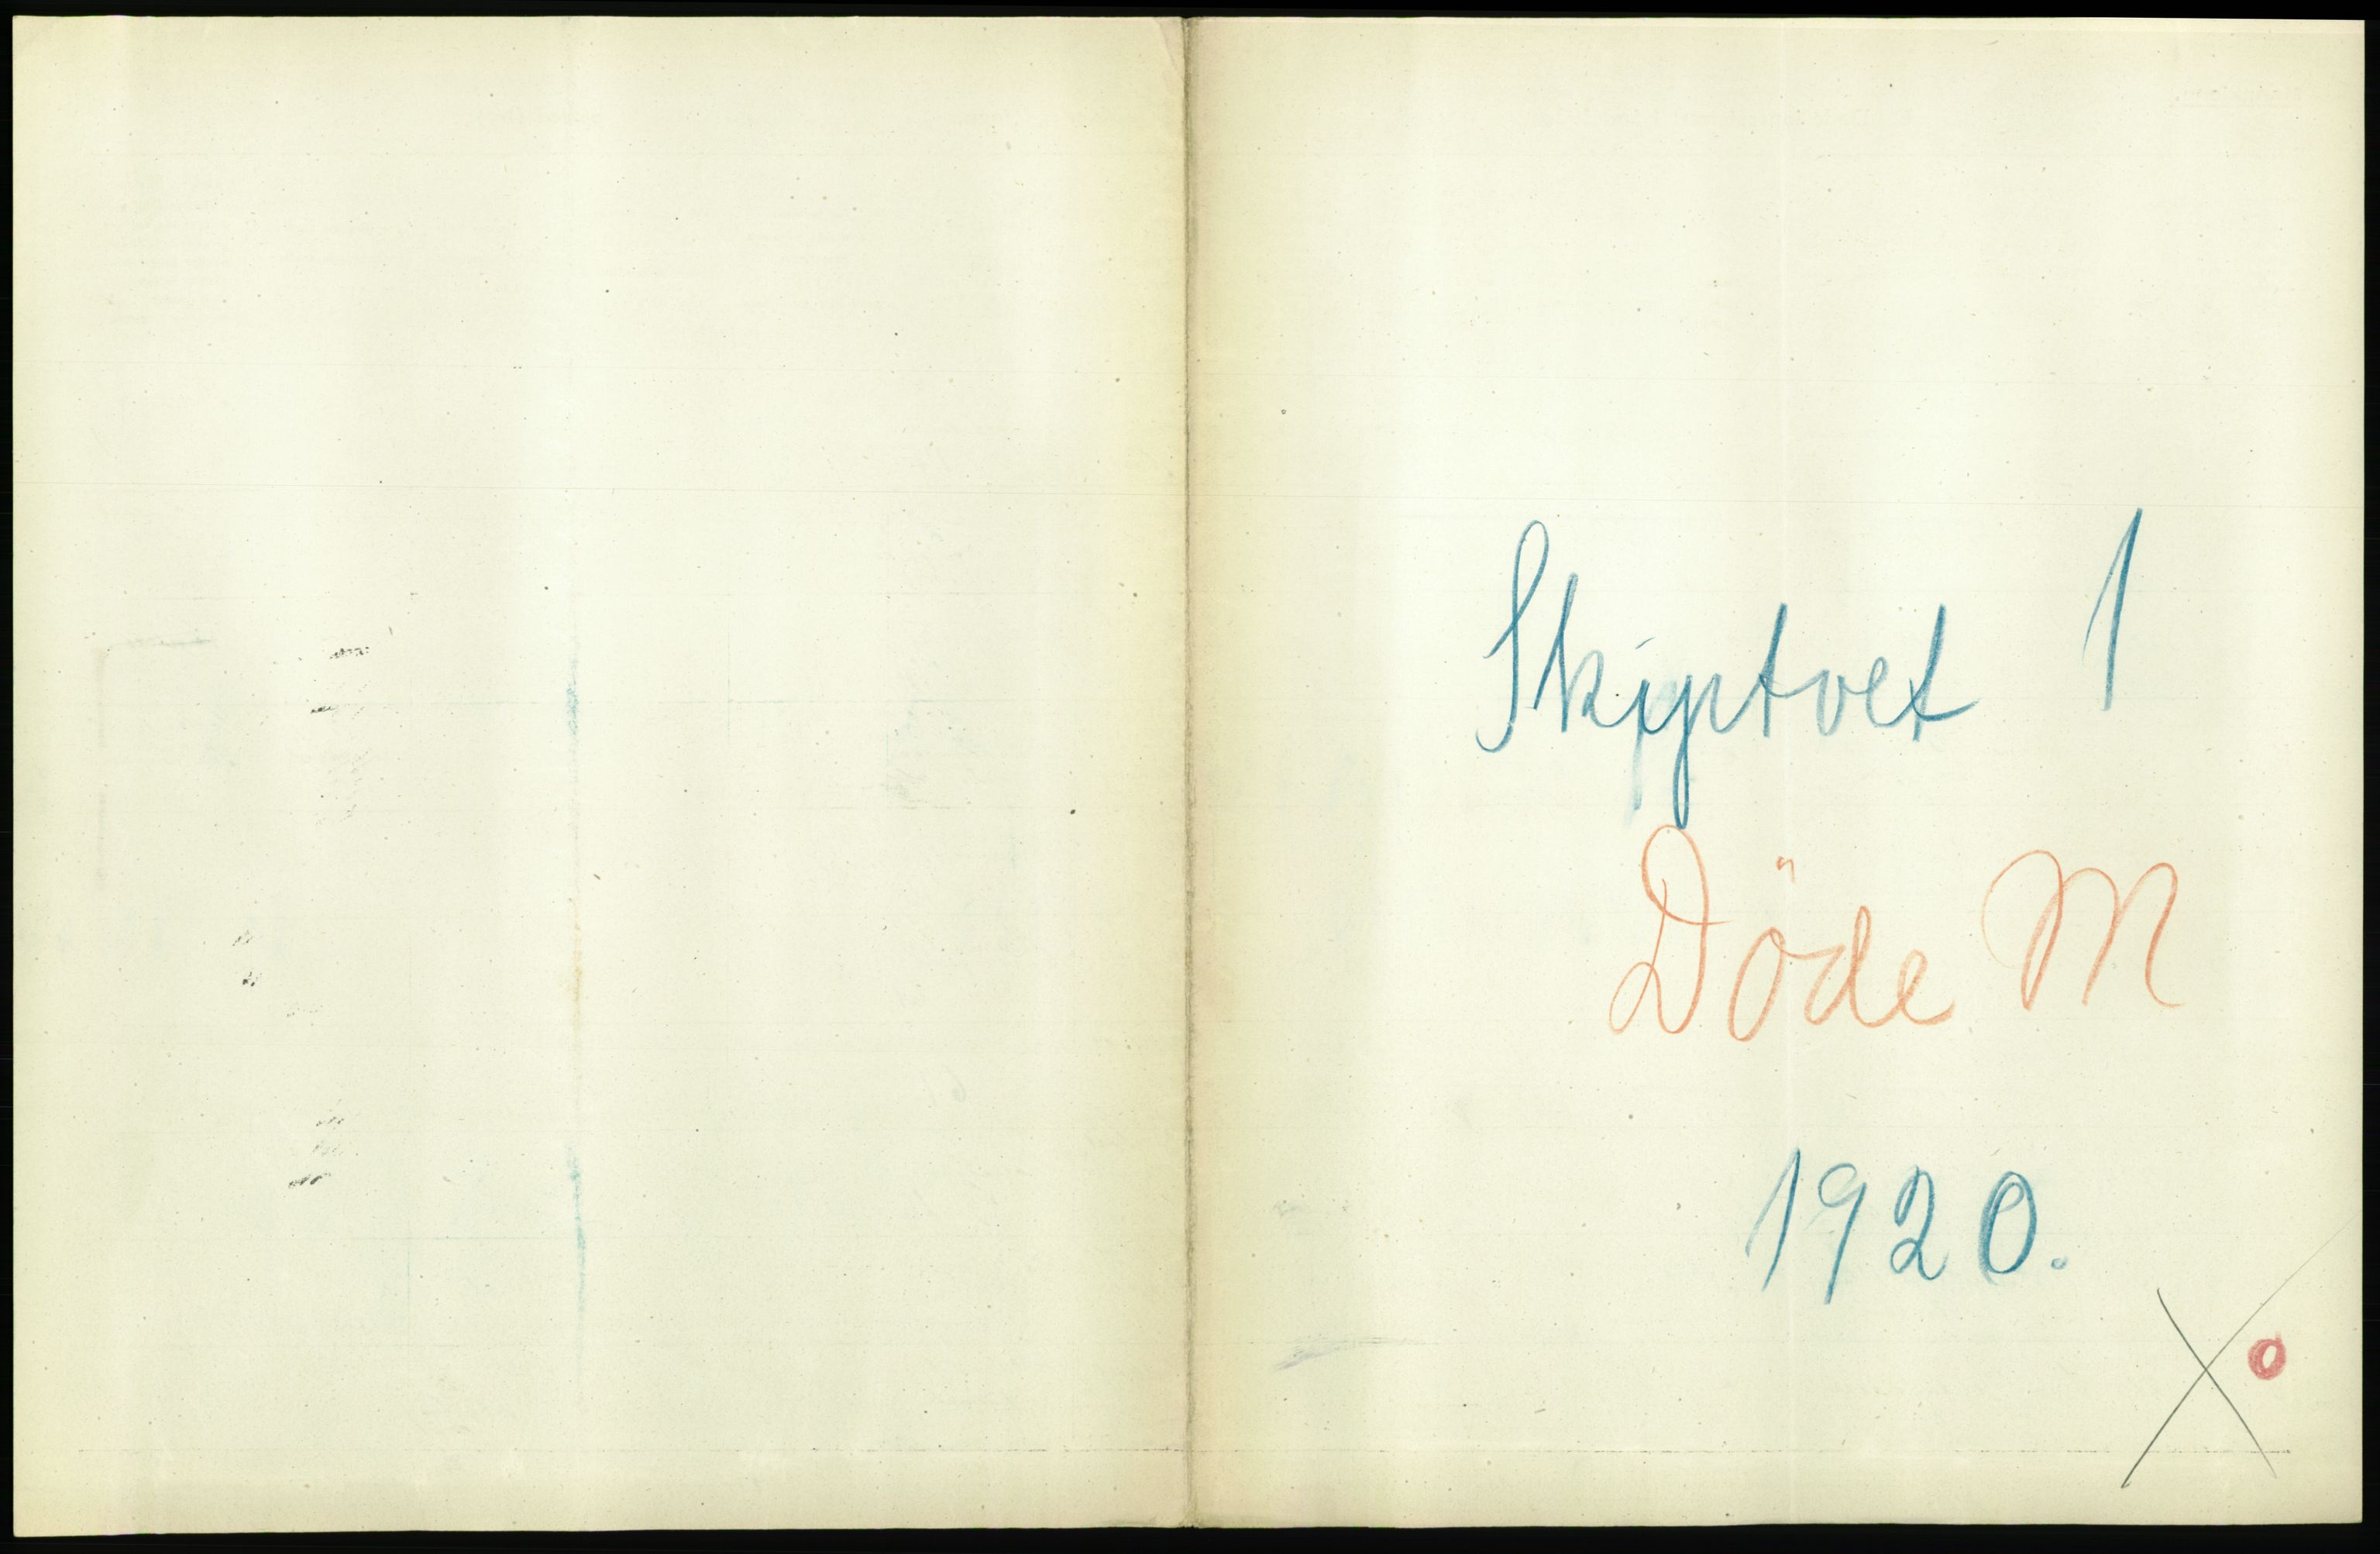 Skiptvet 1
Döde M
1920.
X o